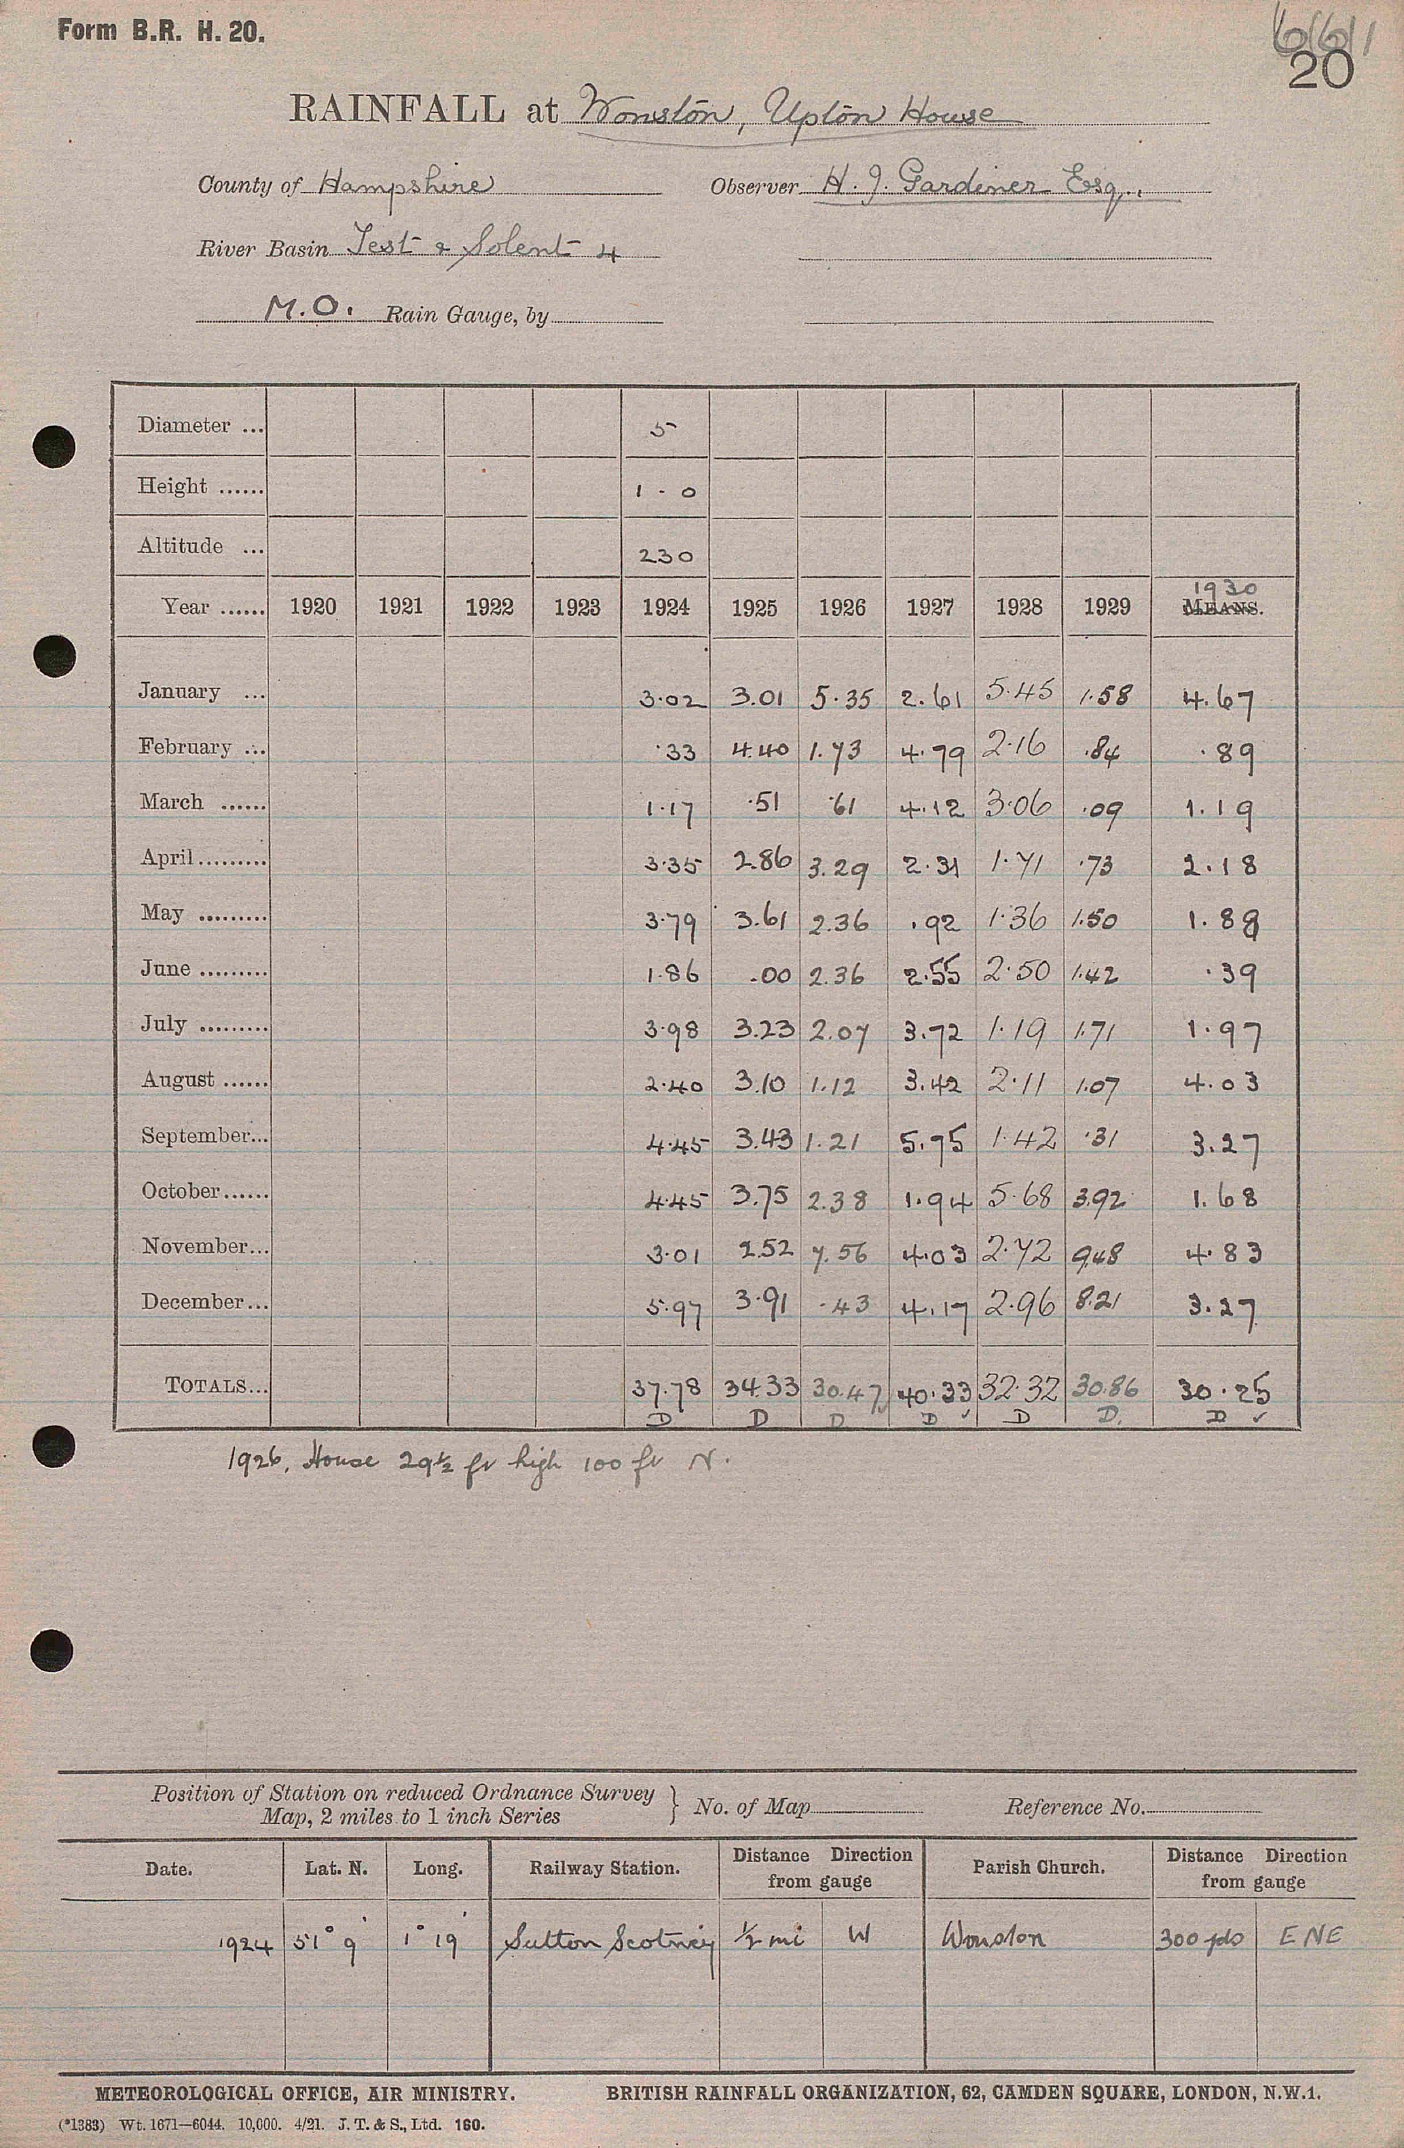 Form B.R. H. 20.
6611
20
RAINFALL at Wonston, Upton House
County of Hampshire Observer H. J. Gardiner Esq.,
River Basin Test & Solent 4
M.O. Rain Gauge, by
Diameter ... 5
Height ...... 1 - 0
Altitude ... 230
1930
Year ...... 1920 1921 1922 1923 1924 1925 1926 1927 1928 1929 MEANS.
January ... 3.02 3.01 5.35 2.61 5.45 1.58 4.67
February ... .33 4.40 1.73 4.79 2.16 .84 .89
March ...... 1.17 .51 .61 4.12 3.06 .09 1.19
April......... 3.35 2.86 3.29 2.31 1.71 .73 2.18
May ......... 3.79 3.61 2.36 .92 1.36 1.50 1.88
June ......... 1.86 .00 2.36 2.55 2.50 1.42 .39
July ......... 3.98 3.23 2.07 3.72 1.19 1.71 1.97
August ...... 2.40 3.10 1.12 3.42 2.11 1.07 4.03
September... 4.45 3.43 1.21 5.75 1.42 .31 3.27
October...... 4.45 3.75 2.38 1.94 5.68 3.92 1.68
November... 3.01 2.52 7.56 4.03 2.72 9.48 4.83
December... 5.97 3.91 .43 4.17 2.96 8.21 3.27
TOTALS... 37.78 34.33 30.47 40.33 32.32 30.86 30.25
D D D D ✓ D D. D ✓
1926, House 29½ ft high 100 ft N.
Position of Station on reduced Ordnance Survey
Map, 2 miles to 1 inch Series } No. of Map Reference No.
Date. Lat. N. Long. Railway Station. Distance Direction from gauge Parish Church. Distance Direction from gauge
1924 51° 9' 1° 19' Sutton Scotney ½ mi W Wonston 300 yds ENE
METEOROLOGICAL OFFICE, AIR MINISTRY. BRITISH RAINFALL ORGANIZATION, 62, CAMDEN SQUARE, LONDON, N.W.1.
(*1383) Wt. 1671—6044. 10,000. 4/21. J. T. & S., Ltd. 160.